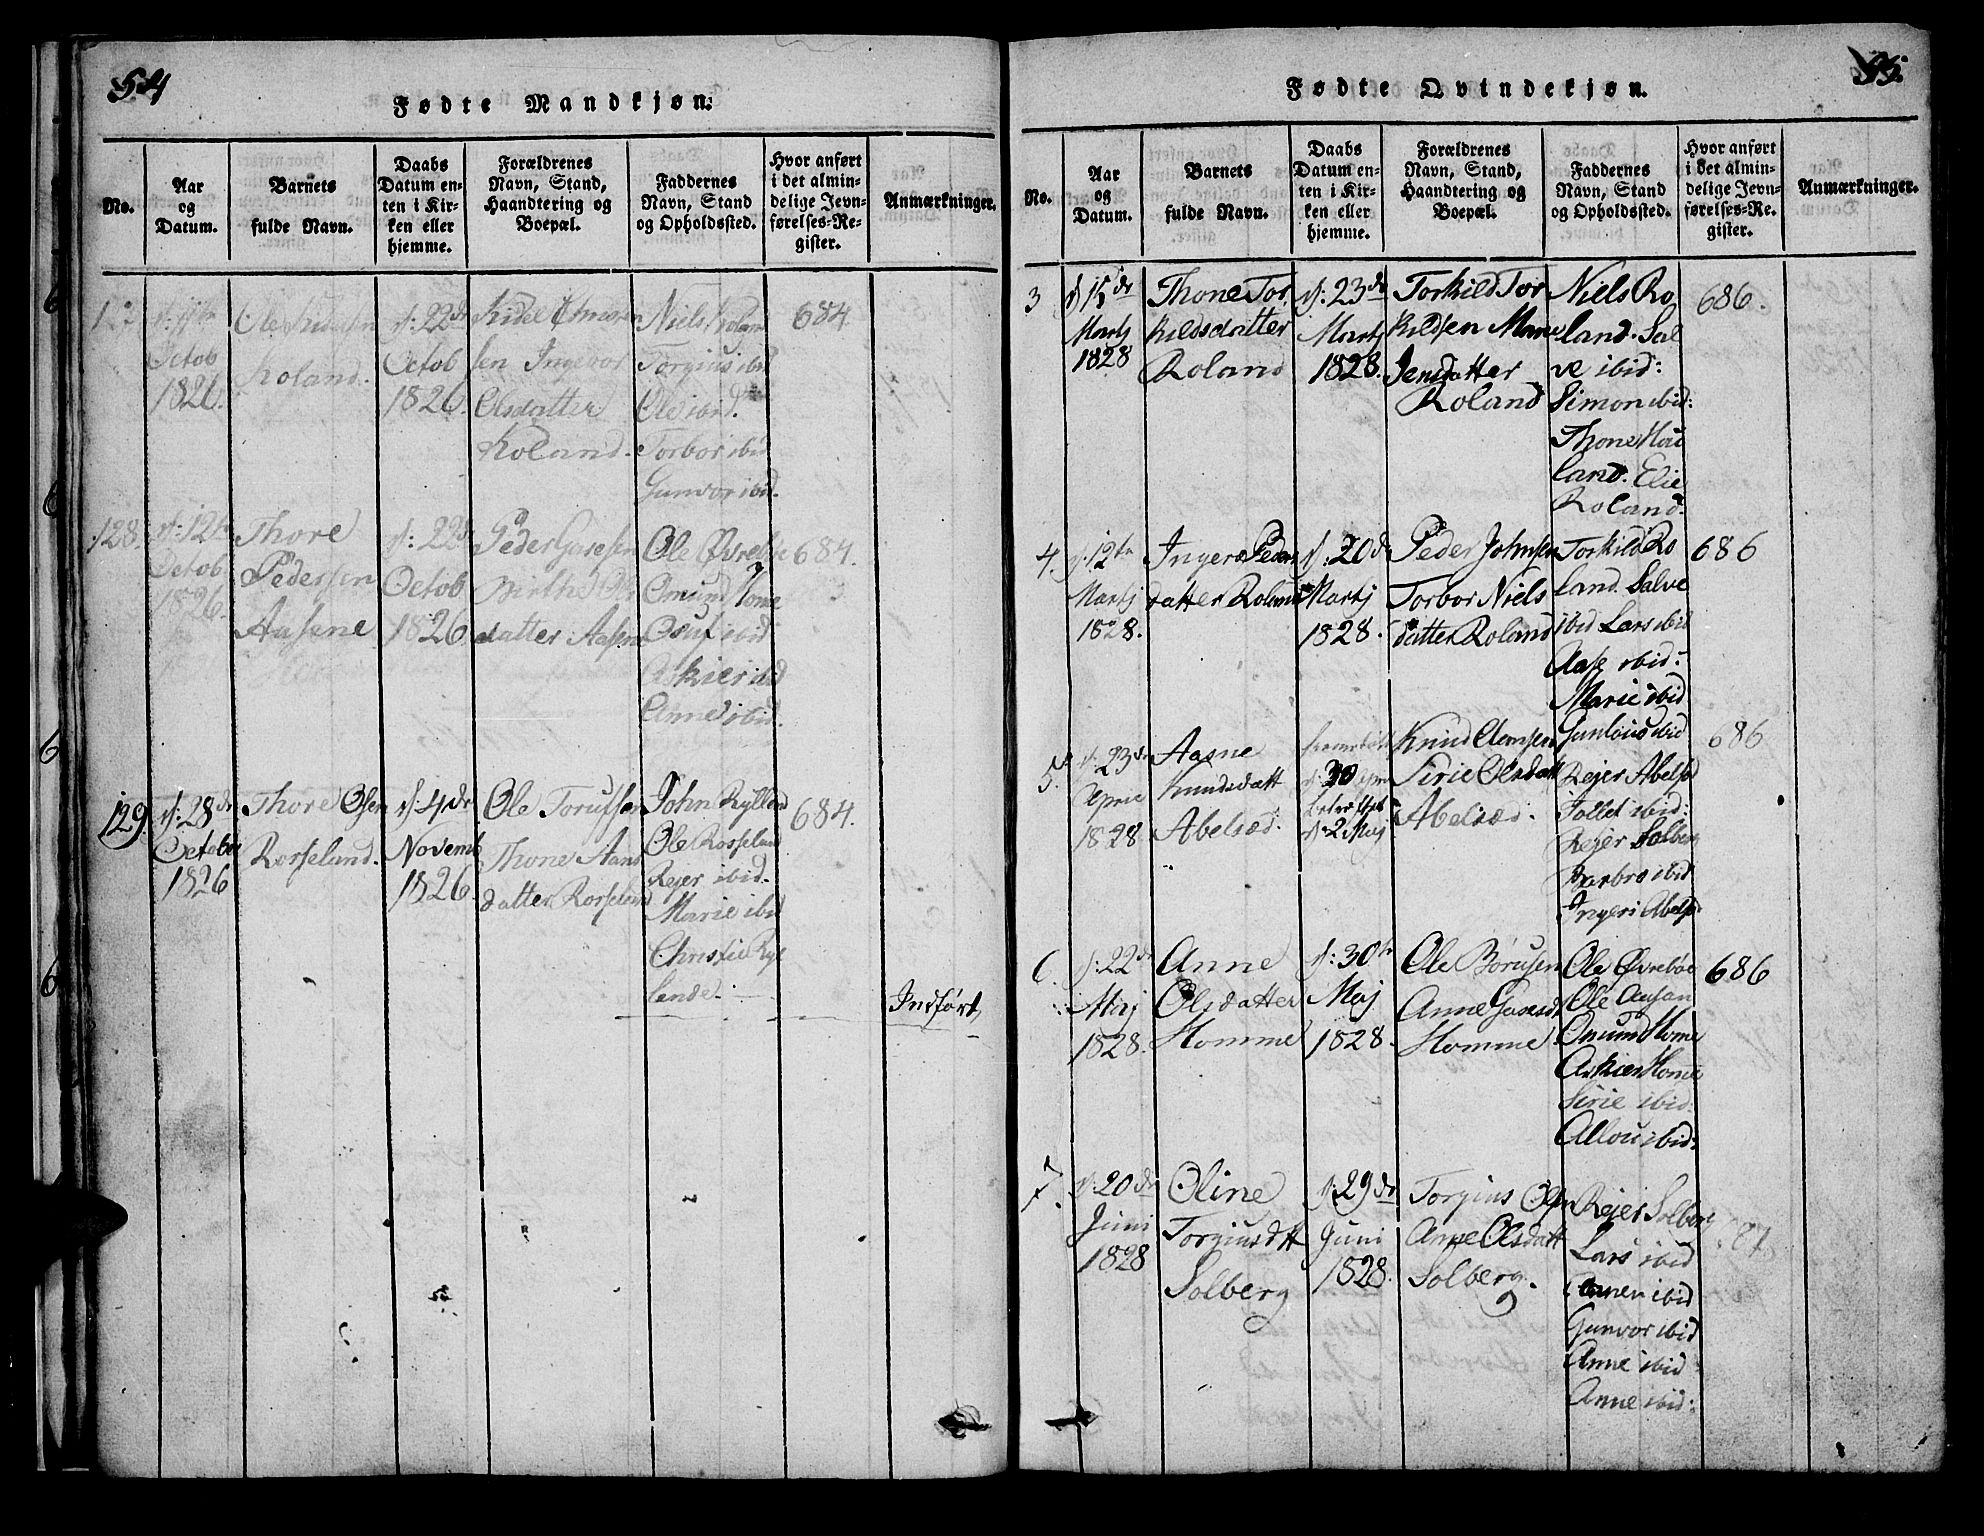 54
Fødte Mandkjøn.
No.
Aar
og
Datum.
Barnets
fulde Navn.
Daabs
Datum en-
ten i Kir-
ken eller
hjemme.
Forældrenes
Navn, Stand,
Haandtering og
Boepæl.
Faddernes
Navn, Stand
og Opholdssted.
Hvor anført
i det almin-
delige Jevn-
førelses-Re-
gister.
Anmærkninger.
Octob
1826.
Ole
Roland.
d: 22de
Octob
1826.
Kidel
sen Ingebor
Olsdatter
Roland.
Niels Roland
Torgius ibid
Ole ibid
Torbor ibid
Gunvor ibid.
684
128.
d: 12te
Octob
1826.
Thore
Pedersen
Aasene
d: 22de
Octob
1826.
Peder
Birthe Ols
datter Aasene
Ole Øvrebøe
Omund Home
Osuf ibid
Askier ibid
Anne ibid.
684.
129.
d: 28de
Octobr
1826
Thore Olsen
Rosseland.
d: 4de
Novemb
1826.
Ole Torussen
Thone Aand
datter Rosseland
John Rylland
Ole Rosseland
Rejer ibid.
Marie ibid
Christie Ryl
lande.
684.
Indført,
55.
Fødte Qvindekjøn.
No.
Aar
og
Datum.
Barnets
fulde Navn.
Daabs
Datum en-
ten i Kir-
ken eller
hjemme.
Forældrenes
Navn, Stand,
Haandtering og
Boepæl.
Faddernes
Navn, Stand
og Opholdssted.
Hvor anført
i det almin-
delige Jevn-
førelses-Re-
gister.
Anmærkninger.
3
d 15de
Martj
1828
Thone Tor
kildsdatter
Roland
d: 23de
Martj
1828.
Torkild Tor
kildsen Marie
Jensdatter
Roland
Niels Ro
land. Sal
ve ibid:
Simon ibid:
Thone Hou
land. Elie
Roland.
686.
4.
d. 12te
Martj
1828.
Ingere Peders
datter Roland
d: 20de
Martj
1828.
Peder Johnsen
Torbor Niels
datter Roland
Torkild Ro
land. Salve
ibid Lars ibid
Aase ibid:
Marie ibid
Gunlous ibid
686
5.
d: 23de
April
1828
Aasne
Knudsdatt
Abelsæd.
d: 30 April
d: 2 Maj
Knud Clemsen
Sirie Olsdatt
Abelsæd.
Rejer Abelsæd
Tollef ibid:
Rejer Solberg
Barbro ibid
Ingeri Abelsæd
686
6.
d: 22de
Maj
1828.
Anne
Olsdatter
Homme
d: 30te
Maj
1828.
Ole Børusen
Anne Gunesdt
Homme
Ole Øvrebøe
Ole Aasan
Omund Home
Askier Home
Sirie ibid:
Allou ibid:
686
7.
d: 20de
Juni
1828
Oline
Torgiusdtt
Solberg
d: 29de
Juni
1828.
Torgius Olsen
Anne Olsdatt
Solberg.
Rejer Solberg
Lars ibid
ibid
Gunvor ibid
Anne ibid
Anne ibid:
687